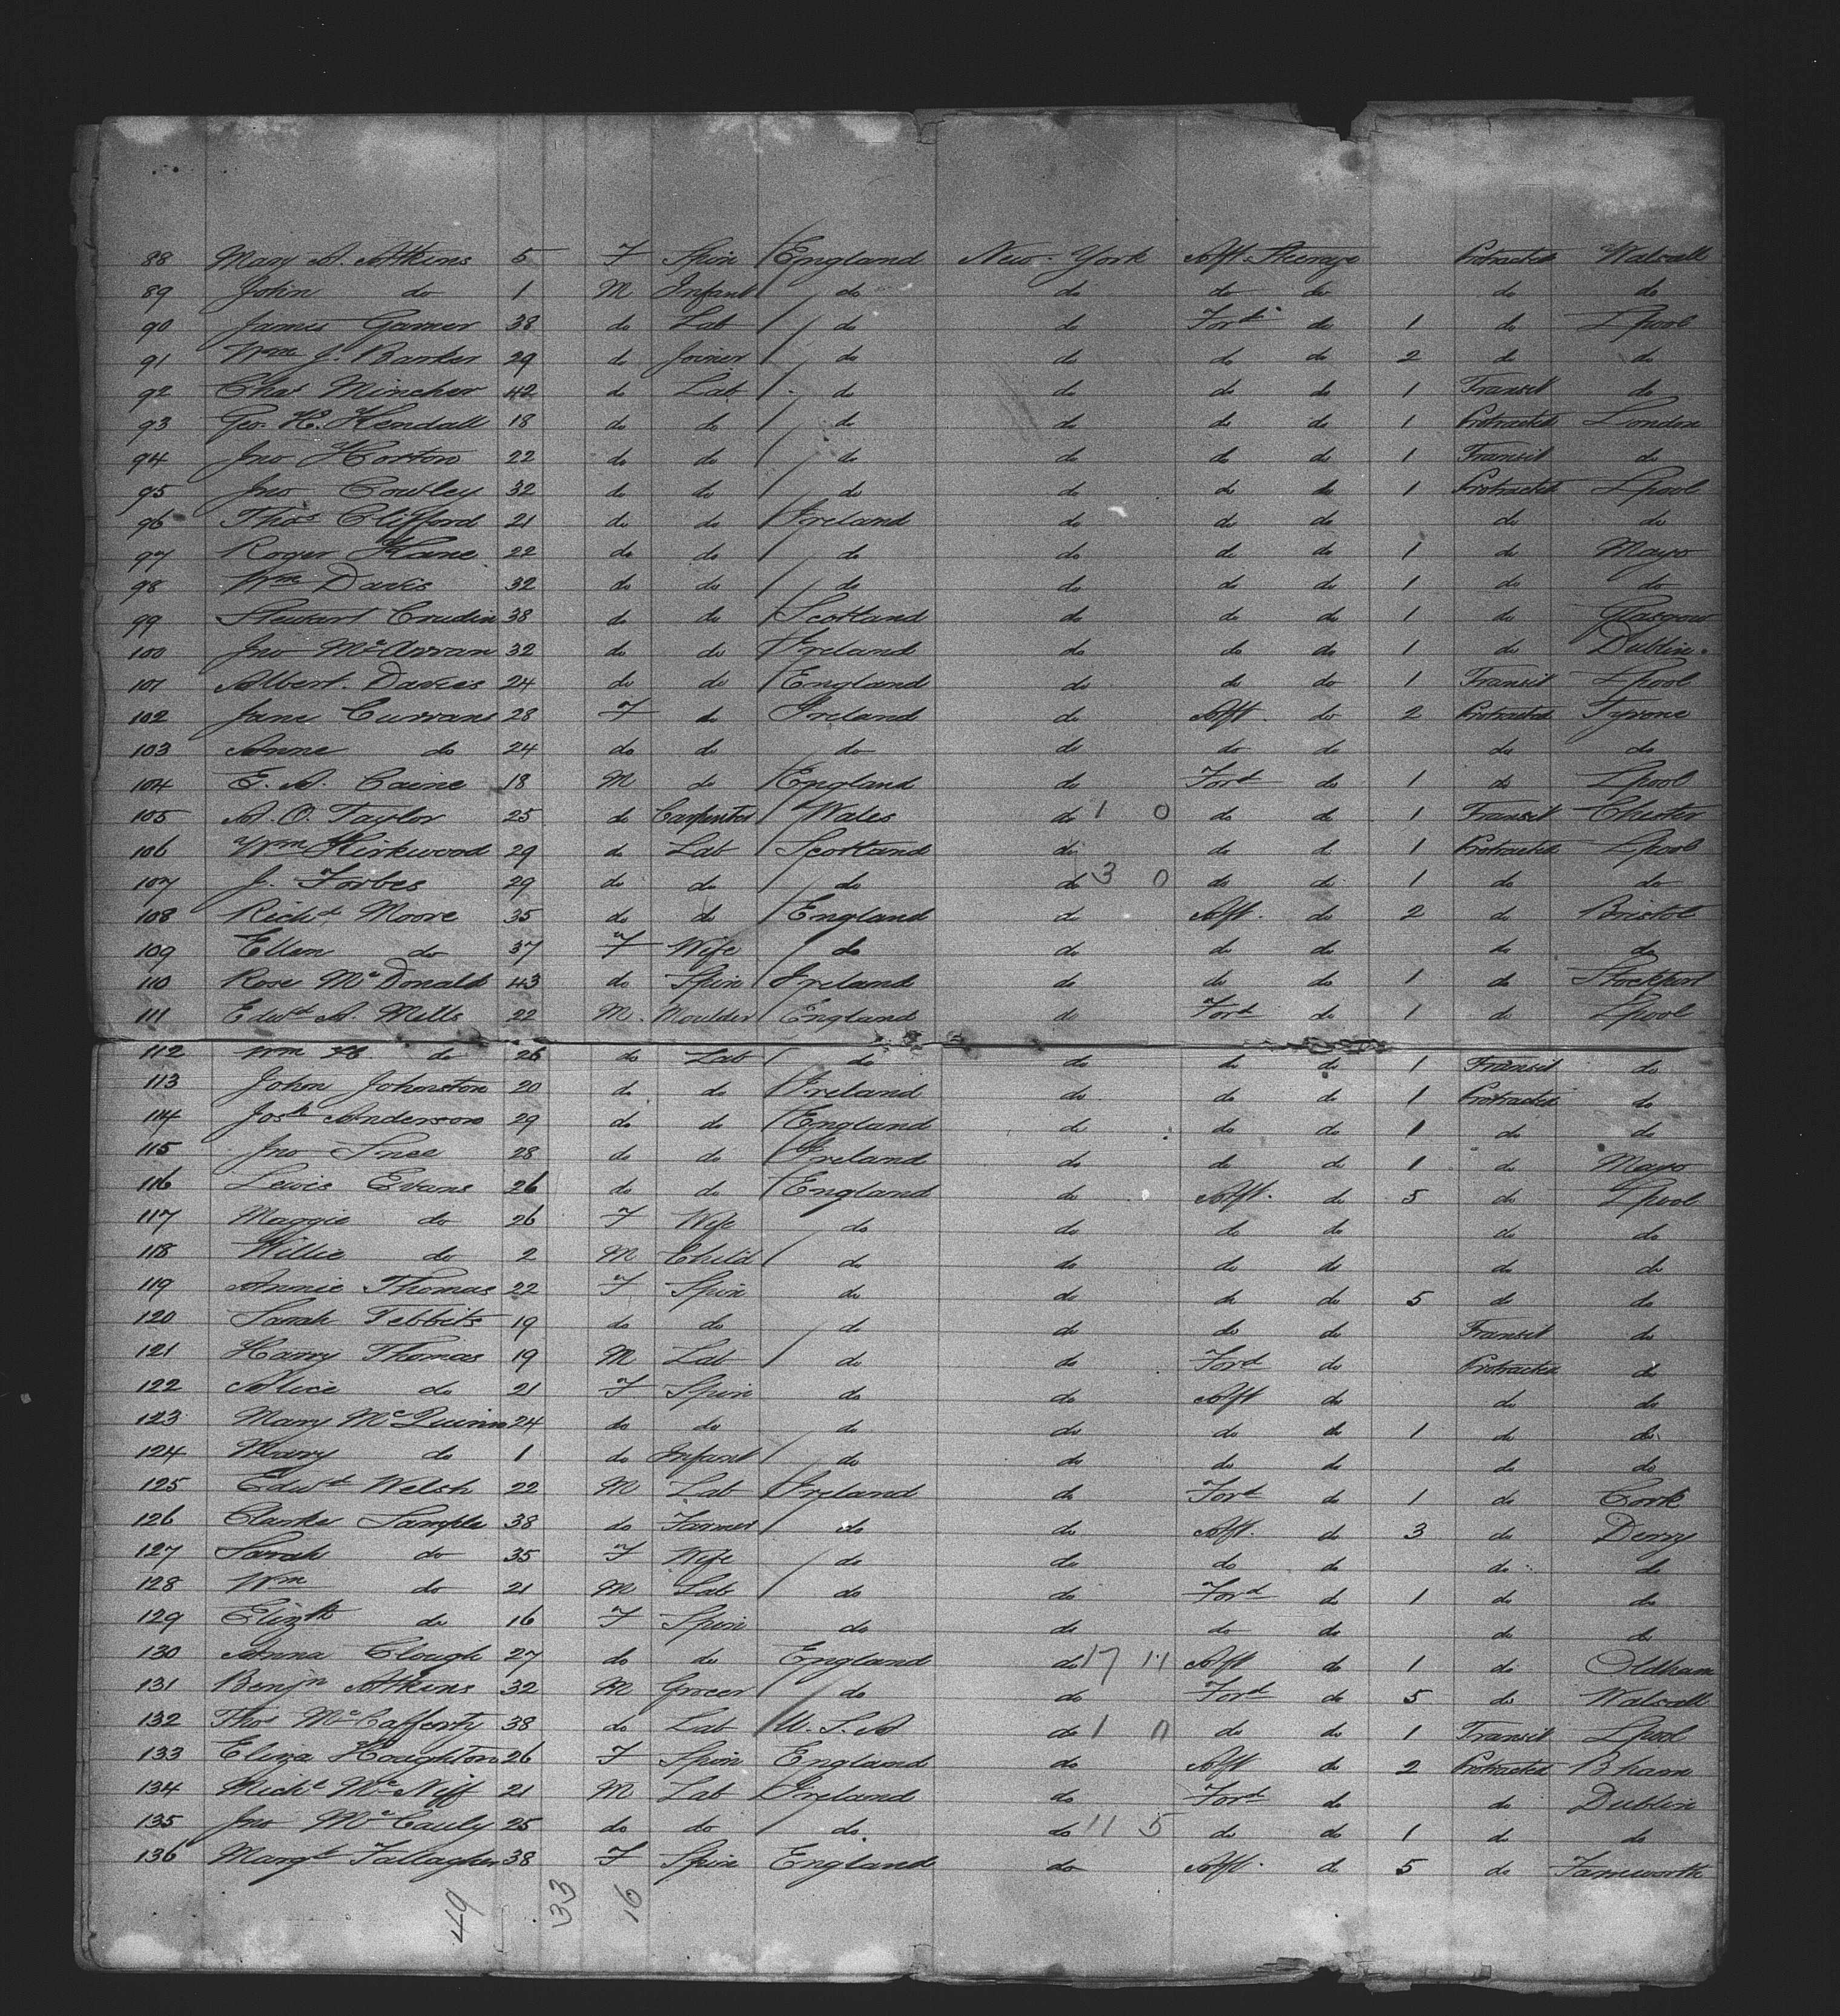 88 Mary A. Atkins 5 F Spin England New York Aft Steerage Protracted Walsall
89 John do 1 M Infant do do do do do do
90 James Gamer 38 do Lab do do Ford do 1 do Lpool
91 Wm J. Barker 29 do Joiner do do do do 2 do do
92 Chas Mincher 42 do Lab do do do do 1 Transit do
93 Geo. H. Kendall 18 do do do do do do 1 Protracted London
94 Jno Horton 22 do do do do do do 1 Transit do
95 Jno Cowley 32 do do do do do do 1 Protracted Lpool
96 Thos Clifford 21 do do Ireland do do do do do
97 Roger Kane 22 do do do do do do 1 do Mayo
98 Wm Davis 32 do do do do do do 1 do do
99 Stewart Crudin 38 do do Scotland do do do 1 do Glasgow
100 Jno McArran 32 do do Ireland do do do 1 do Dublin
101 Albert Davies 24 do do England do do do 1 Transit Lpool
102 Jane Currans 28 F do Ireland do Aft do 2 Protracted Tyrone
103 Anne do 24 do do do do do do do do
104 E. A. Caine 18 M do England do Ford do 1 do Lpool
105 A. O. Taylor 25 do Carpenter Wales do 1 0 do do 1 Transit Chester
106 Wm Kirkwood 29 do Lab Scotland do do do 1 Protracted Lpool
107 J. Forbes 29 do do do do 3 0 do do 1 do do
108 Richd Moore 35 do do England do Aft. do 2 do Bristol
109 Ellen do 37 F Wife do do do do do do
110 Rose McDonald 43 do Spin Ireland do do do 1 do Stockport
111 Edwd A. Mells 22 M. Moulder England do Ford do 1 do Lpool
112 Wm do 26 do Lab do do do do 1 Transit do
113 John Johnston 20 do do Ireland do do do 1 Protracted do
114 Josh Anderson 29 do do England do do do 1 do do
115 Jno Snee 28 do do Ireland do do do 1 do Mayo
116 Lewis Evans 26 do do England do Aft. do 5 do Lpool
117 Maggie do 26 F Wife do do do do do do
118 Willie do 2 M Child do do do do do do
119 Annie Thomas 22 F Spin do do do do 5 do do
120 Sarah Tebbits 19 do do do do do do Transit do
121 Harry Thomas 19 M Lab do do Ford do Protracted do
122 Alice do 21 F Spin do do Aft do do do
123 Mary McQuinn 24 do do do do do do 1 do do
124 Mary do 1 do Infant do do do do do do
125 Edwd Welsh 22 M Lab Ireland do Ford do 1 do Cork
126 Clarke Sample 38 do Farmer do do Aft. do 3 do Derry
127 Sarah do 35 F Wife do do do do do do
128 Wm do 21 M Lab do do Ford do 1 do do
129 Elizth do 16 F Spin do do do do do do
130 Anna Clough 27 do do England do 17 11 Aft do 1 do Oldham
131 Benjn Atkins 32 M Grocer do do Ford do 5 do Walsall
132 Thos McCafferty 38 do Lab U.S.A do 1 0 do do 1 Transit Lpool
133 Eliza Houghton 26 F Spin England do Aft do 2 Protracted Bham
134 Michl McNiff 21 M Lab Ireland do Ford do do Dublin
135 Jno McCauly 25 do do do do 11 5 do do 1 do do
136 Margt Tallagher 38 F Spin England do Aft. do 5 do Farnworth
49 33 16